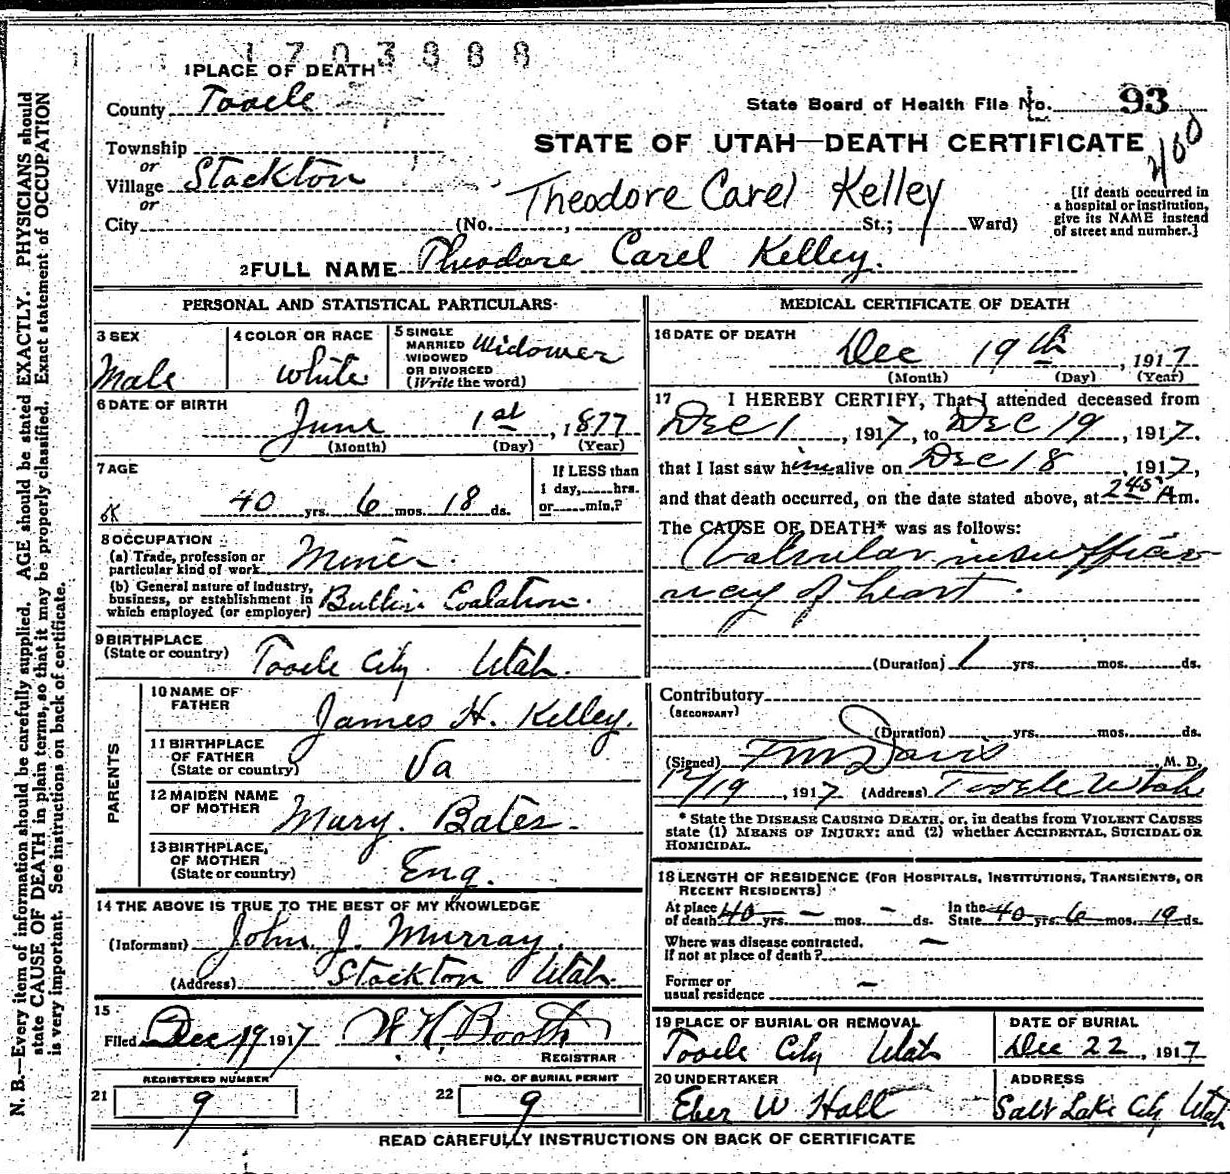 1703888
1 PLACE OF DEATH
County Tooele
State Board of Health File No. 93
460
Township
or
Village Stockton
or
City
STATE OF UTAH—DEATH CERTIFICATE
Theodore Carel Kelley
(No. , St.; Ward)
[If death occurred in
a hospital or institution,
give its NAME instead
of street and number.]
2 FULL NAME Theodore Carel Kelley.
PERSONAL AND STATISTICAL PARTICULARS
3 SEX
Male
4 COLOR OR RACE
White
5 SINGLE
MARRIED
WIDOWED
OR DIVORCED
(Write the word)
Widower
6 DATE OF BIRTH
June 1st, 1877
(Month) (Day) (Year)
7 AGE
40 yrs. 6 mos. 18 ds.
If LESS than
1 day, hrs.
or min.?
8 OCCUPATION
(a) Trade, profession or
particular kind of work Miner.
(b) General nature of industry,
business, or establishment in
which employed (or employer)
9 BIRTHPLACE
(State or country) Tooele City. Utah.
PARENTS
10 NAME OF
FATHER James H. Kelley.
11 BIRTHPLACE
OF FATHER
(State or country) Va
12 MAIDEN NAME
OF MOTHER Mary. Bates.
13 BIRTHPLACE,
OF MOTHER
(State or country) Eng.
14 THE ABOVE IS TRUE TO THE BEST OF MY KNOWLEDGE
(Informant) John J. Murray.
(Address) Stockton Utah.
15
Filed Dec 19 1917 W. H. Booth
REGISTRAR
REGISTERED NUMBER
21 9
NO. OF BURIAL PERMIT
22 9
MEDICAL CERTIFICATE OF DEATH
16 DATE OF DEATH
Dec 19th, 1917
(Month) (Day) (Year)
17 I HEREBY CERTIFY, That I attended deceased from
Dec 1, 1917, to Dec 19, 1917.
that I last saw him alive on Dec 18, 1917,
and that death occurred, on the date stated above, at 245 A m.
The CAUSE OF DEATH* was as follows:
Valvular insufficie
ncy of heart.
(Duration) 1 yrs. mos. ds.
Contributory
(SECONDARY)
(Duration) yrs. mos. ds.
(Signed) F M Davis, M. D.
12/19, 1917 (Address) Tooele Utah
* State the DISEASE CAUSING DEATH, or, in deaths from VIOLENT CAUSES
state (1) MEANS OF INJURY; and (2) whether ACCIDENTAL, SUICIDAL OR
HOMICIDAL.
18 LENGTH OF RESIDENCE (FOR HOSPITALS, INSTITUTIONS, TRANSIENTS, OR
RECENT RESIDENTS)
At place
of death 40 yrs. – mos. – ds.
In the
State 40 yrs. 6 mos. 19 ds.
Where was disease contracted.
If not at place of death? –
Former or
usual residence –
19 PLACE OF BURIAL OR REMOVAL
Tooele City Utah
DATE OF BURIAL
Dec 22, 1917
20 UNDERTAKER
Eber W Hall
ADDRESS
Salt Lake City Utah
READ CAREFULLY INSTRUCTIONS ON BACK OF CERTIFICATE
N. B.—Every item of information should be carefully supplied. AGE should be stated EXACTLY. PHYSICIANS should
state CAUSE OF DEATH in plain terms, so that it may be properly classified. Exact statement of OCCUPATION
is very important. See instructions on back of certificate.